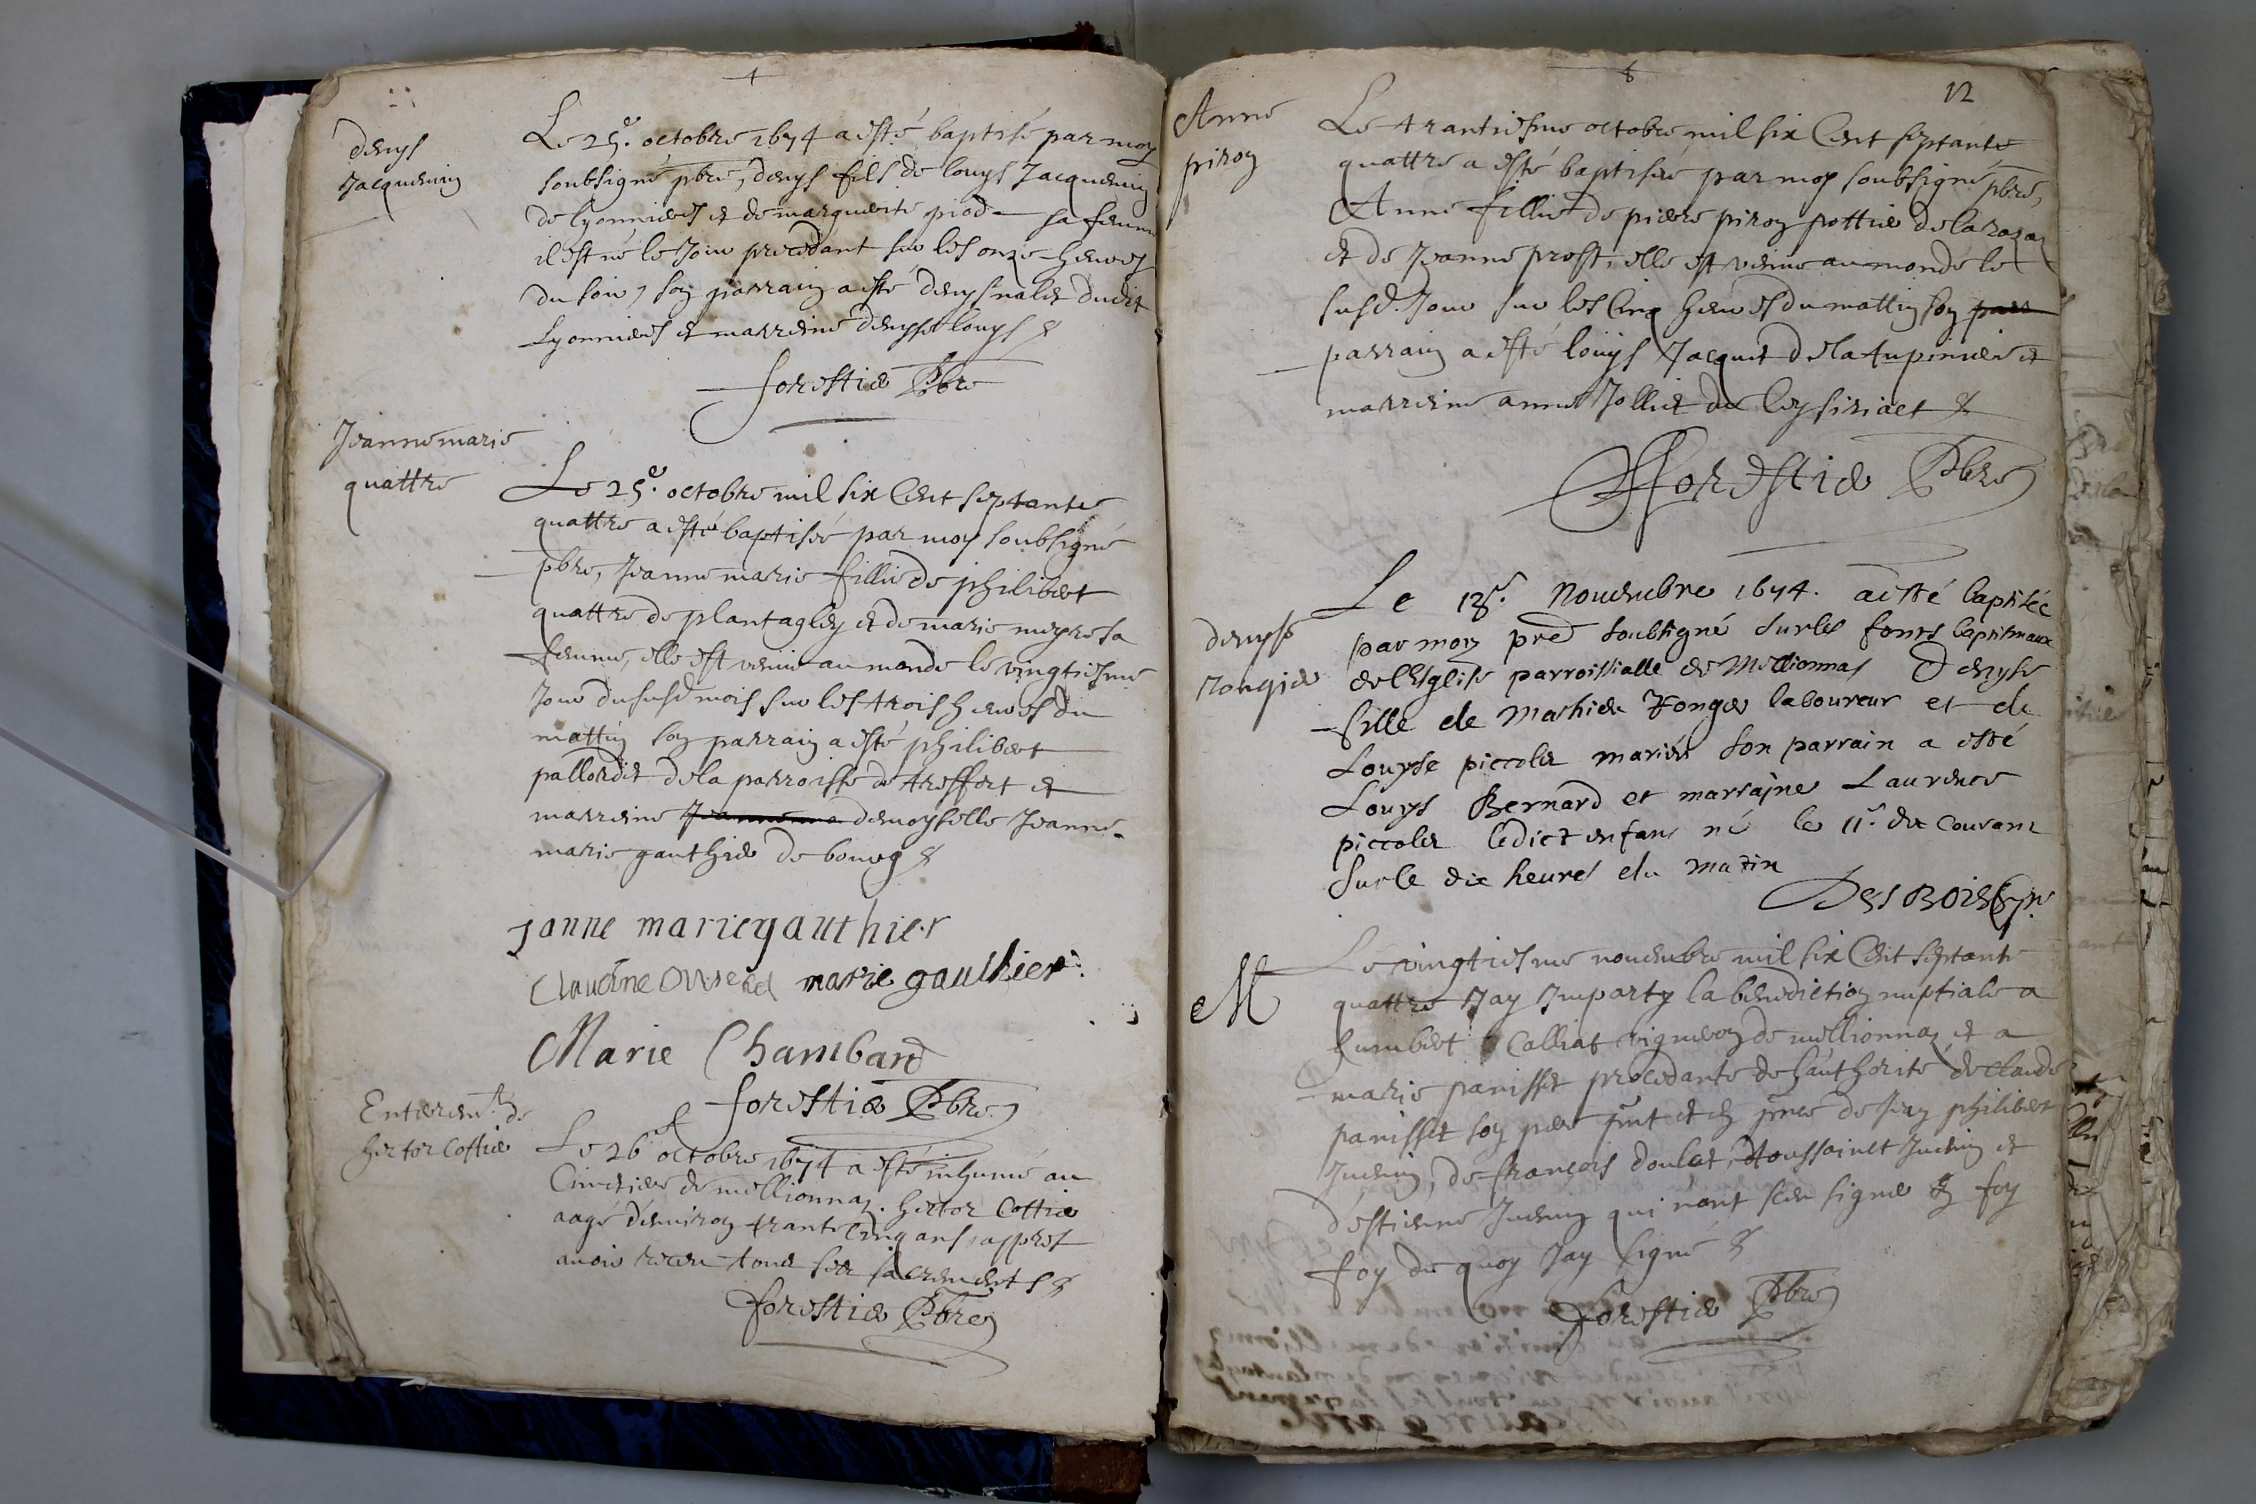 denys
Jacquemin
Le 25e. octobre 1674 a esté baptisé par moy
soubsigné pbre, denys fils de louys Jacquemin
de lyonnieres et de marguerite piod sa femme
il est né le Jour precedant sur les onze heures
du soir, son parrain a esté denys nalet dudit
Lyonnieres et marreine denyse louys
forestier Pbre
Jeanne marie
quattre
Le 25e. octobre mil six Cent septante
quattre a esté baptisée par moy soubsigné
pbre, Jeanne marie fillie de philibert
quattre de plantagley et de marie meyre sa
femme, elle est venue au monde le vingtiesme
Jour du susd mois sur les trois heures du
mattin son parrain a esté philibert
pallordet de la parroisse de treffort et
marreine demoyselle Jeanne
marie gauthier de bourg
janne marie gauthier
Claudine marie gauthier
Marie Chambard
forestier Pbre
Enterremt. de
hector Cottier
Le 26e octobre 1674 a esté inhumé au
Cimetiere de meillionnaz. hector Cottier
aagé d'environ trante Cinq ans, appres
avoir receu tous ses sacrements
forestier Pbre
12
Anne
piroz
Le trantiesme octobre mil six Cent septante
quattre a esté baptisée par moy soubsigné pbre,
Anne fillie de pierre piroz pottier de la razaz
et de Jeanne prost, elle est venue au monde le
susd. Jour sur les Cinq heures du mattin son parr
parrain a esté loüys Jacquet de la tupiniere et
marreine anne Jolliet de leysiriact
fforestier Pbre
denyse
rongier
Le 18e. Nouembre 1674. a esté baptisée
par moy pred soubsigné sur les fonts baptismaux
de l'Esglise parroissialle de Meillionnas Denyse
fille de Mathieu Rongier laboureur et de
Louyse piccolet mariés son parrain a esté
Louys Bernard et marrajne Laurence
piccolet ledict enfant né le 11e. du Courant
sur le dix heures du matin
Desbois
M
Le vingtiesme nouembre mil six Cent septante
quattre Jay Imparty la benediction nuptiale a
humbert Calliat vigneron de meillionnaz et a
marie panisset procedante de l'authorité de claude
panisset son pere et en pnce de Jean philibert
Juenin, de françois doulat, toussainct Juenin et
d'estienne Juenin qui n'ont sceu signer en foy
foy de quoy Jay signé
forestier Pbre